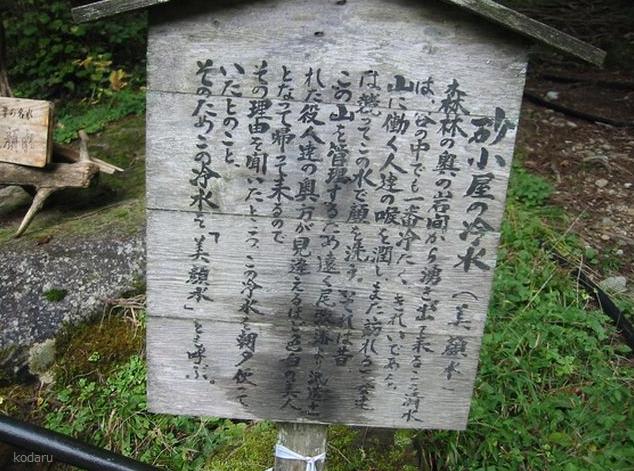 砂小屋の冷水（美顔水）
森林の奥の岩間から湧き出て来るこの清水
は、谷の中でも一番冷たく、きれいである。
山に働く人達の喉を潤し、また訪れるご婦人達
は競ってこの水で顔を洗う。それは昔
この山を管理するため遠く尾張藩より
れた役人達の奥方が見違えるほど色白の美人
となって帰って来るので
その理由を聞いたところ、この冷水を朝夕飲んで
いたとのこと
そのためこの冷水を「美顔水」とも呼ぶ。
kodaru